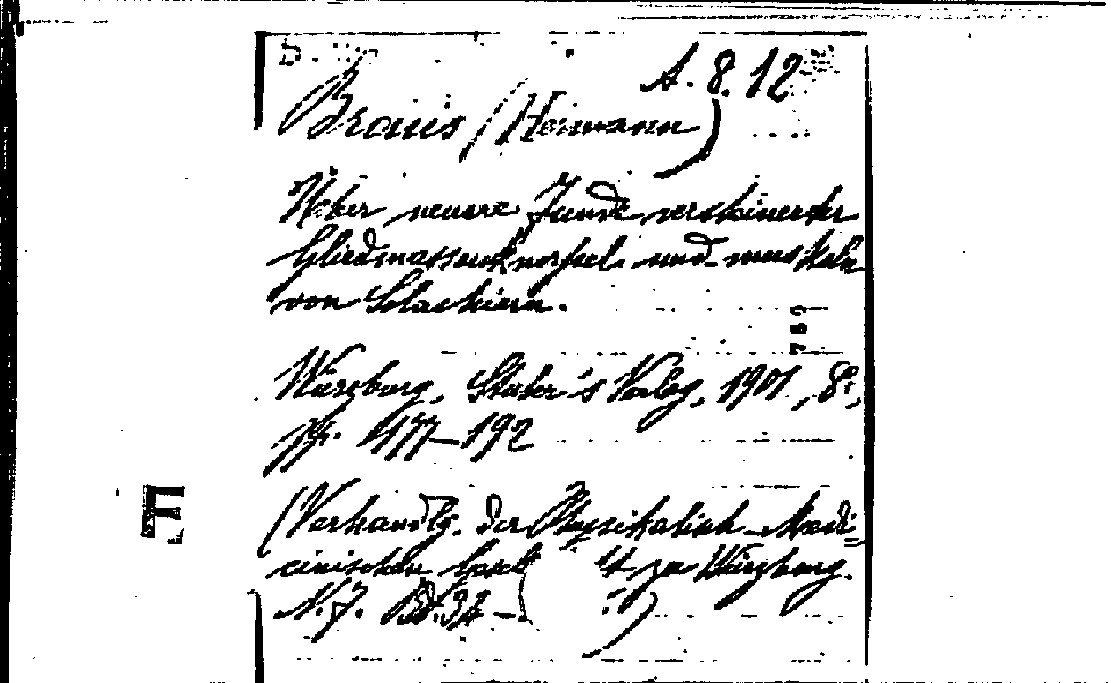 A. 8. 12
Braus (Hermann)
Ueber neuere Funde versteinerter
Gliedmassenknorpel und muskeln
von Selachiern.
782
Würzburg, Stuber's Verlag, 1901, 8º,
pp. 177-192
E
(Verhandlg. der Physikalisch-Medi-
cinischen Gesell t zu Würzburg.
N. F. Bd. 34 - )